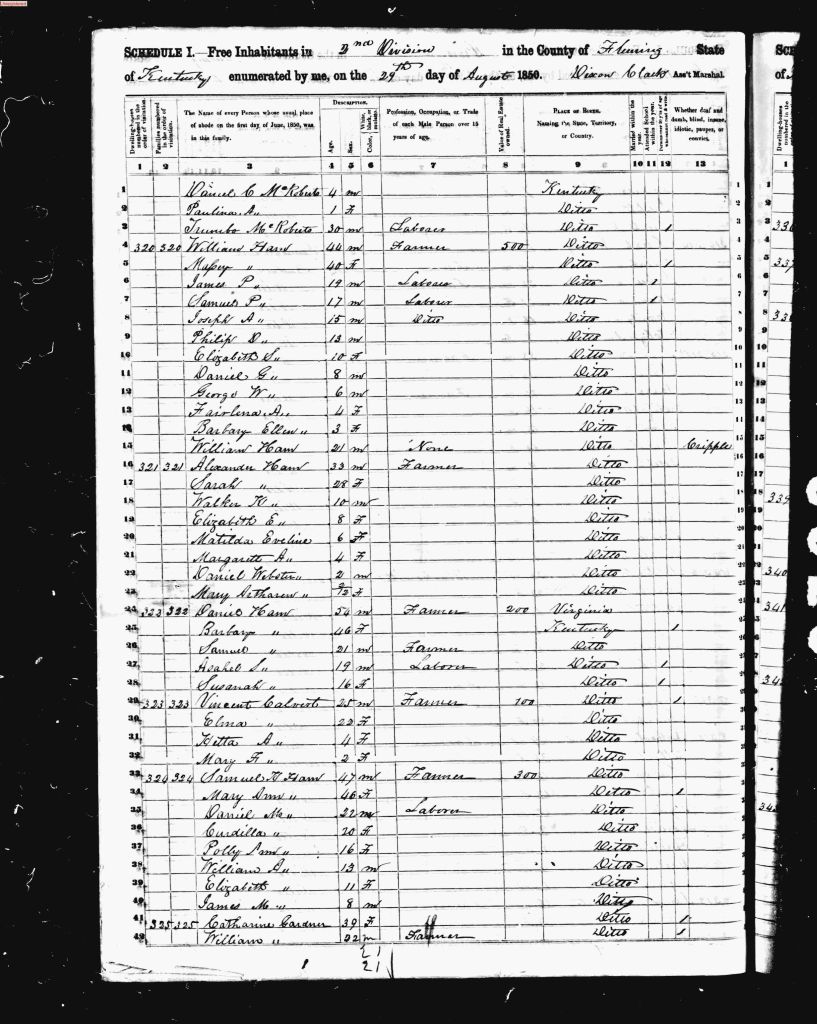 SCHEDULE I.—Free Inhabitants in 2nd Division in the County of Fleming State
of Kentucky enumerated by me, on the 29th day of August 1850. Dixon Clack Ass't Marshal.
Dwelling-houses numbered in the order of visitation.
Families numbered in the order of visitation.
The Name of every Person whose usual place of abode on the first day of June, 1850, was in this family.
DESCRIPTION.
Age.
Sex.
Color,
Profession, Occupation, or Trade of each Male Person over 15 years of age.
Value of Real Estate owned.
PLACE OF BIRTH. Naming the State, Territory, or Country.
Married within the year.
Attended School within the year.
Whether deaf and dumb, blind, insane, idiotic, pauper, or convict.
1 2 3 4 5 6 7 8 9 10 11 12 13
1 Daniel C McRoberts 4 m Kentucky 1
2 Paulina A " 1 F Ditto 2
3 Trumbo McRoberts 30 m Laborer Ditto 1 3
4 320 320 William Ham 44 m Farmer 500 Ditto 4
5 " 40 F Ditto 1 5
6 James P " 19 m Laborer Ditto 1 6
7 Samuel P " 17 m Laborer Ditto 1 7
8 Joseph A " 15 m Ditto Ditto 8
9 Philip D " 13 m Ditto 9
10 Elizabeth S " 10 F Ditto 10
11 Daniel G " 8 m Ditto 11
12 George W " 6 m Ditto 12
13 A " 4 F Ditto 13
14 Barbary Ellen " 3 F Ditto 14
15 William Ham 21 m None Ditto Cripple 15
16 321 321 Alexander Ham 33 m Farmer Ditto 16
17 Sarah " 28 F Ditto 17
18 Walker H " 10 m Ditto 18
19 Elizabeth E " 8 F Ditto 19
20 Matilda Eveline 6 F Ditto 20
21 Margarett A " 4 F Ditto 21
22 Daniel Webster " 2 m Ditto 22
23 Mary " F Ditto 23
24 322 Daniel Ham 54 m Farmer 200 Virginia 24
25 Barbary " 46 F Kentucky 1 25
26 Samuel " 21 m Farmer Ditto 26
27 Asahel S " 19 m Laborer Ditto 1 27
28 Susanah " 16 F Ditto 1 28
29 323 323 Vincent Calvert 25 m Farmer 100 Ditto 1 29
30 Elma " 22 F Ditto 30
31 Hetta A " 4 F Ditto 31
32 Mary F " 2 F Ditto 32
33 324 324 Samuel K Ham 47 m Farmer 300 Ditto 33
34 Mary Ann " 46 F Ditto 1 34
35 Daniel M " 22 m Laborer Ditto 35
36 Curdilla " 20 F Ditto 36
37 Polly Ann " 16 F Ditto 37
38 William A " 13 m Ditto 38
39 Elizabeth " 11 F Ditto 39
40 James M " 8 m Ditto 40
41 325 325 Catharine Gardner 39 F Ditto 1 41
42 William " 22 m Farmer Ditto 1 42
21
21
SCH
of
1
339
340
341